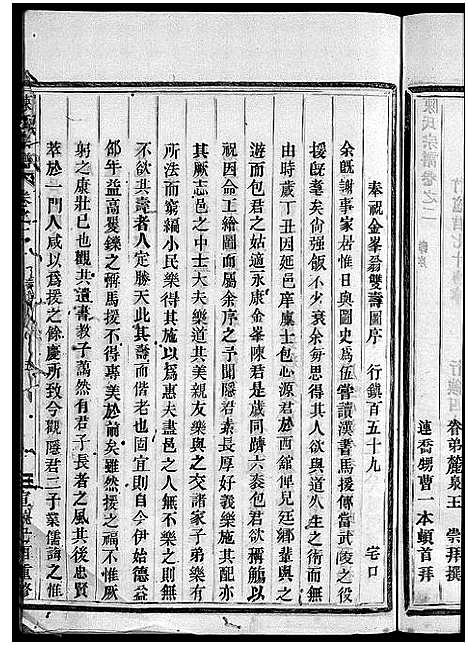 陳氏宗譜卷之二
眷弟麓泉王崇拜撰
蓮喬甥曹一本頓首拜
奉祝金峯翁雙壽圖序 行鎮百五十九 宅口
余既謝事家居惟日與圖史爲伍嘗讀漢書馬援傳當武陵之役
援既耄矣尚强飯不少衰余每思得其人欲與遊而久不可得
由時歲丁丑因延邑庠廪士包心源君於西舘俾兒廷鄰輩與之
遊而包君之姑適永康金峯陳君是歲陳君壽六袠包君欲稱觴以
祝因命工繪圖而屬余序之予聞隱君素長厚好義樂施其配亦
其厥志邑之中士大夫樂道其美親友樂與之交諸家子弟樂有
所法而窮鄉小民樂得其施以爲惠夫盡邑之人無不樂之則無
不欲其壽者人定勝天此其壽而偕老也固宜則自今伊始德益
邵年益高矍鑠之稱馬援不得專美於前矣雖然援之福不惟厥
躬之康壯已也觀其遺書教子藹然有君子長者之風其後忠賢
萃於一門人咸以爲援之餘慶所致今觀隱君二子業儒誨之惟